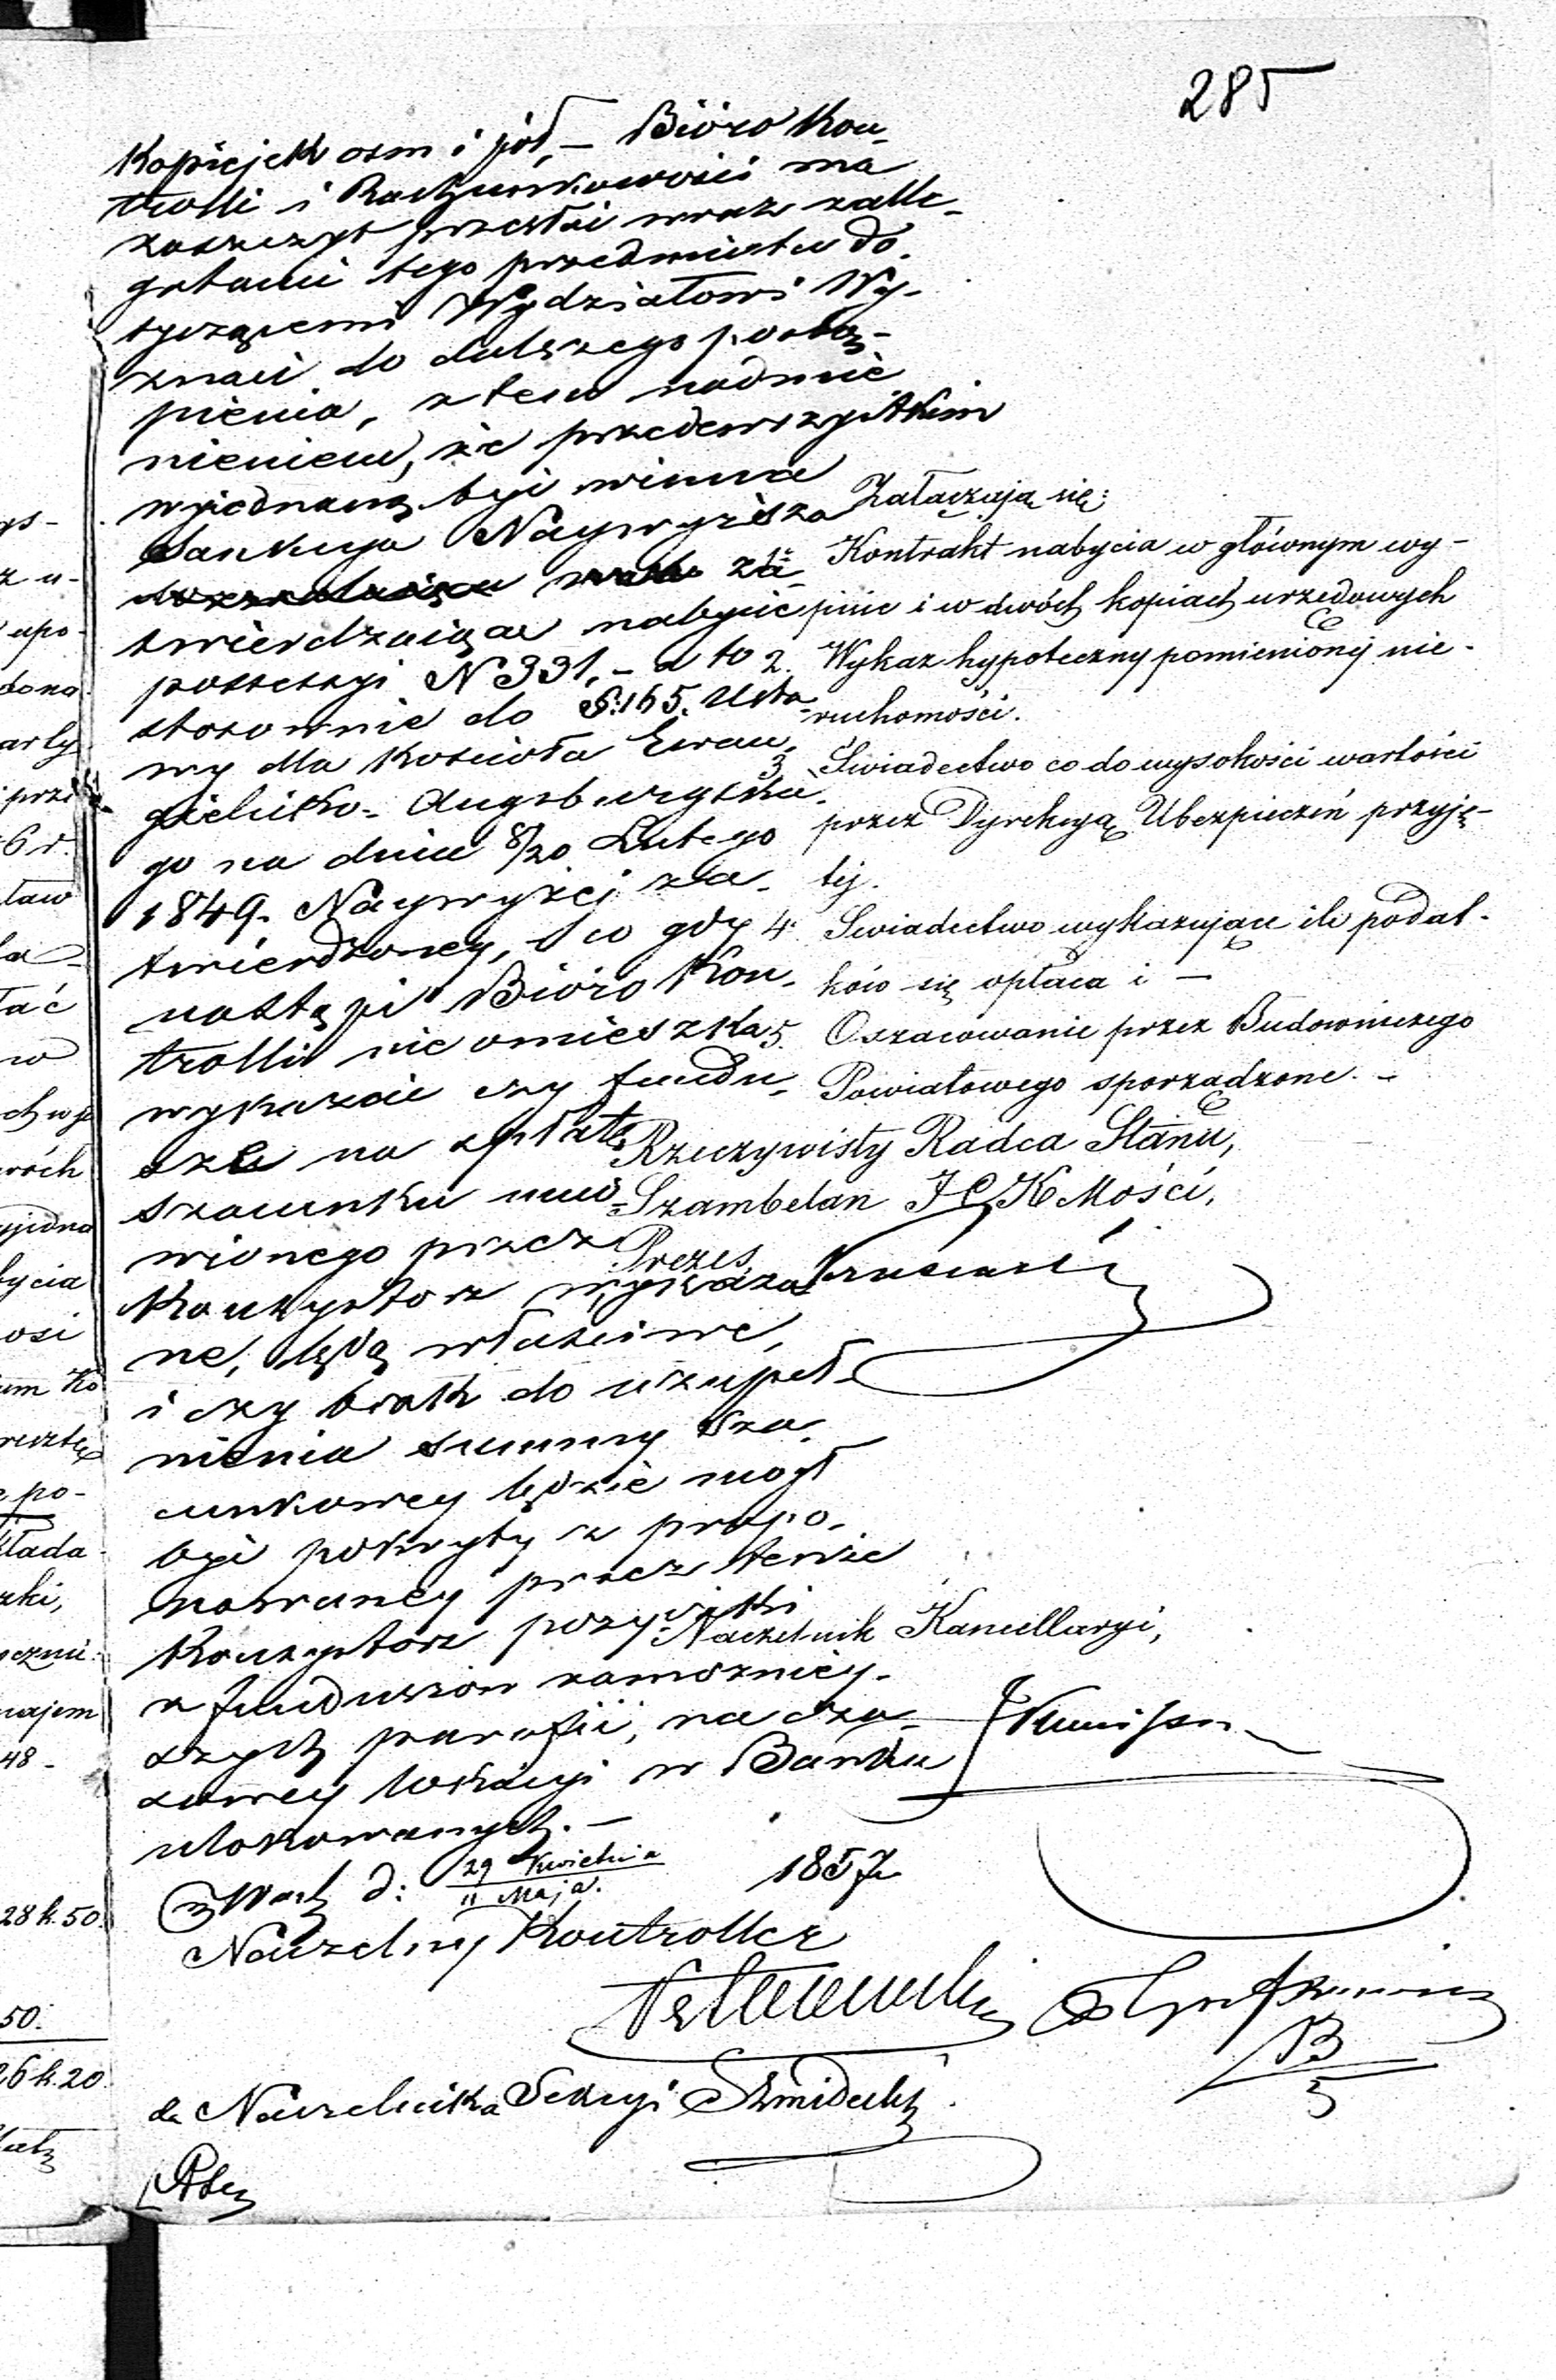 285
Kopiejek osm i pół, – Bióro Kon-
trolli i Rachunkowości ma
zaszczyt przesłać wraz z alle-
gatami tego przedmiotu do-
tyczącemi Wydziałowi Wy-
znań do dalszego postą-
pienia, z tem nadmie-
nieniem, że przedewszystkiem
wyjednaną być winna
Sankcya Naywyższa
za-
twierdzaiąca nabycie
possessyi N 331, – a to
stosownie do §. 165. Usta-
wy dla Kościoła Ewan-
gielicko-Augsburgskie-
go na dniu 8/20 Lutego
1849. Naywyżej za-
twierdzoney, i co gdy
nastąpi Bióro Kon-
trolli nie omieszka
wykazać czy fundu-
sze na zpłatę
szacunku umó-
wionego przez
Konsystorz wykaza-
ne, będą właściwe,
i czy brak do uzupeł-
nienia summy sza-
cunkowey będzie mógł
być pokryty z propo-
nowaney przez tenże
Konsystorz pożyczki
z funduszów zamożniey-
szych parafii, na cza-
sowey lokacyi w Banku
ulokowanych. –
Warsz d: 29 Kwietnia / 11 Maja. 1857
Naczelny Kontroller
za Naczelnika Sekcyi Szmidecki
Załączają się:
1. Kontrakt nabycia w głównym wy-
pisie i w dwóch kopiach urzędowych
2. Wykaz hypoteczny pomienionej nie-
ruchomości.
3. Świadectwo co do wysokości wartości
przez Dyrekcyą Ubezpieczeń przyję-
tej.
4. Swiadectwo wykazujące ile podat-
ków się opłaca i –
5. Oszacowanie przez Budowniczego
Powiatowego sporządzone. –
Rzeczywisty Radca Stanu,
Szambelan J C K Mości,
Prezes
Naczelnik Kancellaryi,
B
5
ys-
z u-
upo-
dona-
arly
przi
6 r.
taw
la-
tać
w
ch wy
wóch
yjedna
bycia
osi
um Ko
reszte
po-
kłada-
zki,
czni-
najem
48-
28 k. 50.
50.
26 k. 20.